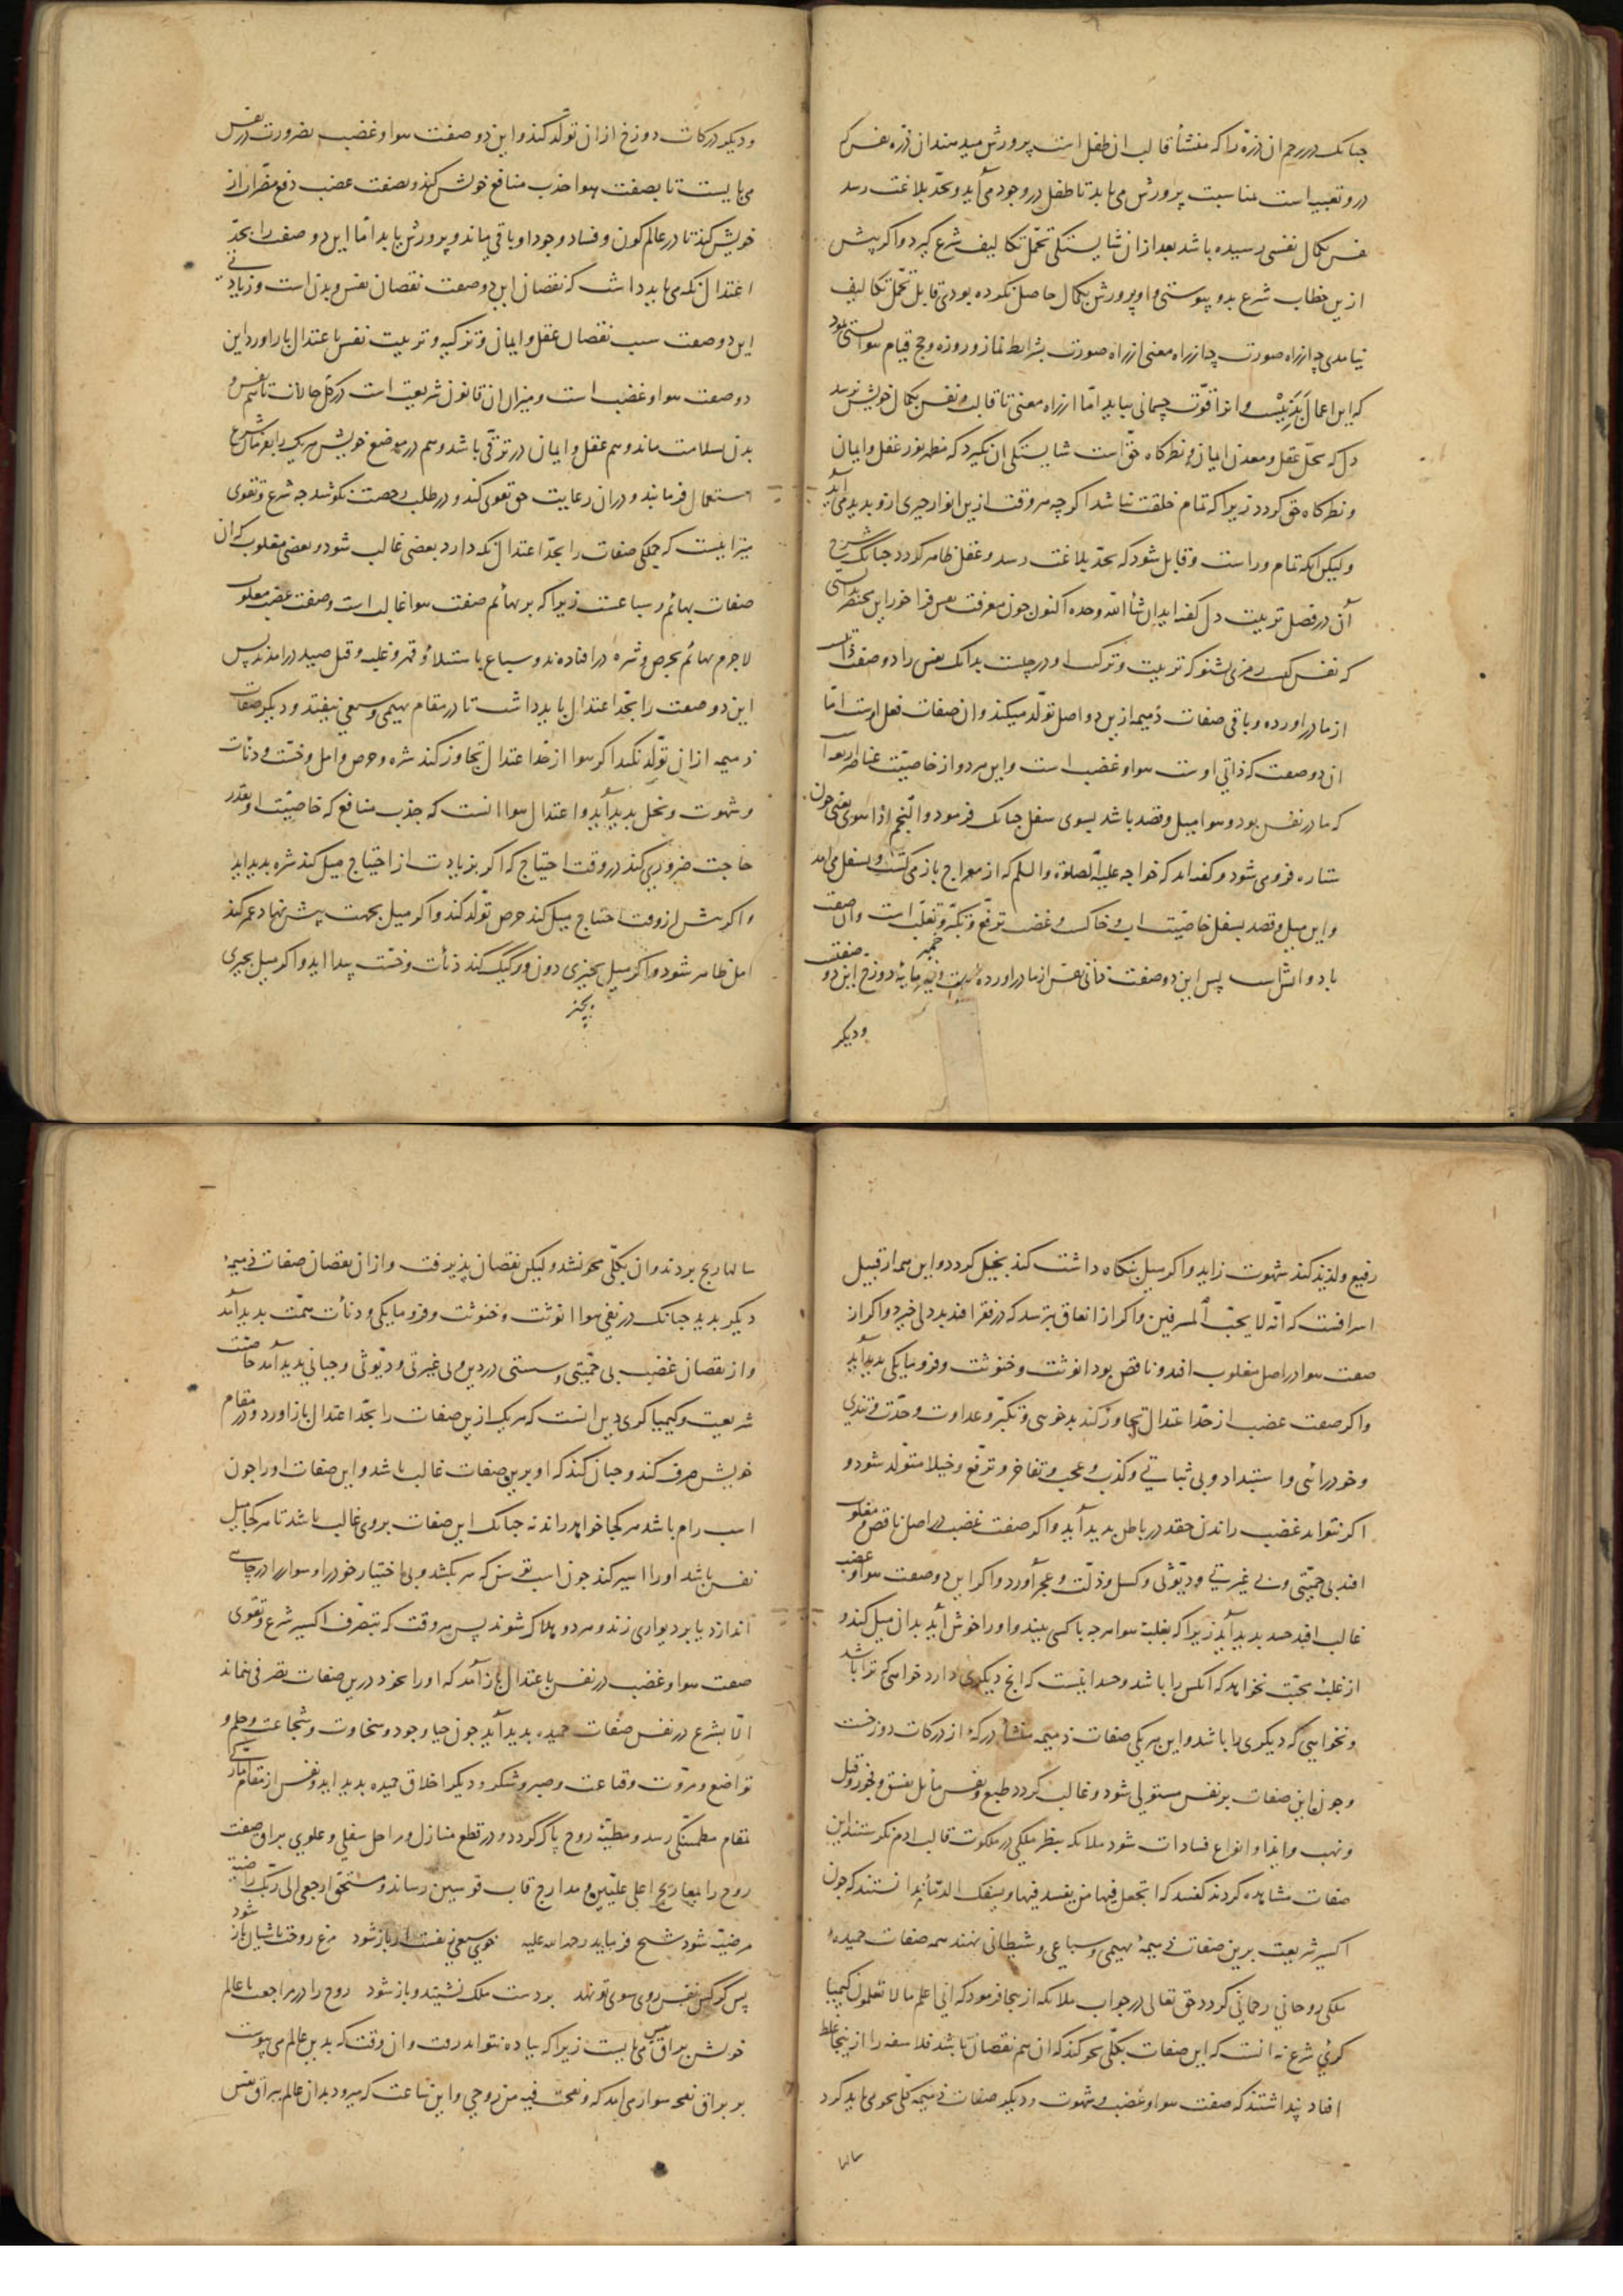 چنانک در رحم ان ذرّه را که منشأ قالب ان طفل است پرورش میدهند ان ذرّه نفس که
در و تعبیه است بمناسبت پرورش می یابد تا طفل در وجود می آید و بحدّ بلاغت رسد
نفس بکمال نفسی رسیده باشد بعد از ان شایستگی تحمّل تکالیف شرع کیرد و اکر پیش
ازین خطاب شرع بدو پیوستی و او پرورش بکمال حاصل نکرده بودی قابل تحمّل تکالیف
نیامدی چه از راه صورت چه از راه معنی از راه صورت بشرایط نماز و روزه و حج قیام نتوانستی نمود
که این اعمال بدنیست و انرا قوّت جسمانی بباید امّا از راه معنی تا قالب و نفس بکمال خویش نرسد
دل که محلّ عقل و معدن ایمان و نظرکاه حقّ است شایستگی ان نکیرد که مظهر نور عقل و ایمان
و نظرکاه حق کردد زیرا که تمام خلقت نباشد اکرچه هر وقت ازین انوار چیزی ازو بدید می آید
ولیکن انکه تمام وراست و قابل شود که بحدّ بلاغت رسد و عقل ظاهر کردد چنانک شرح
آن در فصل تربیت دل کفته اید ان شأ الله وحده اکنون چون معرفت نفس فراخور این مختصر بدانستی
که نفس کیست رمزی بشنو که تربیت و تزکیت او در چیست بدانک نفس را دو صفت ذاتیست
از مادر اورده و باقی صفات ذمیمه ازین دو اصل تولّد میکند و ان صفات فعل اوست امّا
ان دو صفت که ذاتی اوست هوا و غضب است و این هر دو از خاصیّت عناصر اربعه است
که مادر نفس بود و هوا میل و قصد باشد بسوی سفل چنانک فرمود و النّجم اذا هوی یعنی چون
ستاره فرو می شود و کفته اند که خواجه علیه الصلوة و السلم که از معراج باز می کشت و بسفل می امد
و این میل و قصد بسفل خاصیّت اب و خاک است و غضب ترفّع و تکبّر و تغلّب است و ان صفت
باد و اتش است پس این دو صفت ذاتی نفس از مادر اورده است و خمیر مایهٔ دوزخ این دو صفتست
و دیکر
و دیکر درکات دوزخ از ان تولّد کند و این دو صفت هوا و غضب بضرورت در نفس
می بایست تا بصفت هوا جذب منافع خویش کند و بصفت غضب دفع مضرّات از
خویش کند تا در عالم کون و فساد وجود او باقی بماند و پرورش یابد امّا این دو صفت را بحدّ
اعتدال نکه می باید داشت که نقصان این دو صفت نقصان نفس و بدن است و زیادتی
این دو صفت سبب نقصان عقل و ایمان و تزکیه و تربیت نفس باعتدال باز اوردن این
دو صفت هوا و غضب است و میزان ان قانون شریعت است در کلّ حالات تا هم نفس و
بدن بسلامت ماند و هم عقل و ایمان در ترقّی باشد و هم در موضع خویش هر یک را بفرمان شرع
استعمال فرمایند و در ان رعایت حق تقوی کند و در طلب رخصت نکوشد چه شرع و تقوی
میزانیست که جملکی صفات را بحدّ اعتدال نکه دارد بعضی غالب شود و بعضی مغلوب که ان
صفات بهائم و سباعست زیرا که بر بهائم صفت هوا غالب است و صفت غضب مغلوب
لاجرم بهائم بحرص و شره در افتاده ند و سباع باستیلاء و قهر و غلبه و قتل و صید در امدند پس
این دو صفت را بحدّ اعتدال باید داشت تا در مقام بهیمی و سبعی نیفتد و دیکر صفات
ذمیمه از ان تولّد نکند اکر هوا از حدّ اعتدال تجاوز کند شره و حرص و امل و خسّت و دنأت
و شهوت و بخل بدید آید و اعتدال هوا انست که جذب منافع که خاصیّت اوست بقدر
حاجت ضروری کند در وقت احتیاج که اکر بزیادت از احتیاج میل کند شره بدید اید
و اکر پیش از وقت احتیاج میل کند حرص تولّد کند و اکر میل بجهت پیش نهاد عمر کند
امل ظاهر شود و اکر میل بچیزی دون و رکیک کند دنأت و خسّت پیدا اید و اکر میل بچیزی
بچیز
رفیع و لذیذ کند شهوت زاید و اکر میل بنکاه داشت کند بخیل کردد و این همه از قبیل
اسرافست که انّه لا یحبّ المسرفین و اکر از انفاق بترسد که در فقر افتد بد دلی خیزد و اکر از
صفت هوا در اصل مغلوب افتد و ناقص بود انوثت و خنوثت و فرومایکی بدید آید
و اکر صفت غضب از حدّ اعتدال تجاوز کند بدخویی و تکبّر و عداوت و حدّت و تندی
و خودرائی و استبداد و بی ثباتی و کذب و عجب و تفاخر و ترفّع و خیلا متولّد شود و
اکر نتواند غضب راندن حقد در باطن بدید آید و اکر صفت غضب در اصل ناقص و مغلوب
افتد بی حمیّتی و بی غیرتی و دیّوثی و کسل و ذلّت و عجز آورد و اکر این دو صفت هوا و غضب
غالب افتد حسد بدید آید زیرا که بغلبهٔ هوا هرچه با کسی بیند و او را خوش آید بدان میل کند و
از غلبهٔ محبّت نخواهد که انکس را باشد و حسد اینست که انچ دیکری دارد خواهی که ترا باشد
و نخواهی که دیکری را باشد و این هر یکی صفات ذمیمه منشأ درکهٔ از درکات دوزخست
و چون این صفات بر نفس مستولی شود و غالب کردد طبع و نفس مایل بفسق و فجور و قتل
و نهب و ایذا و انواع فسادات شود ملائکه بنظر ملکی در ملکوت قالب ادم نکرستند این
صفات مشاهده کردند کفتند که اتجعل فیها من یفسد فیها و یسفک الدّمأ ندانستند که چون
اکسیر شریعت برین صفات ذمیمهٔ بهیمی و سباعی و شیطانی نهند همه صفات حمیدهٔ
ملکی روحانی رحمانی کردد حق تعالی در جواب ملائکه از اینجا فرمود که انّی اعلم ما لا تعلمون کیمیا
کری شرع نه انست که این صفات بکلّی محو کند که ان هم نقصان باشد فلاسفه را از ینجا غلط
افتاد پنداشتند که صفت هوا و غضب و شهوت و دیکر صفات ذمیمه کلّی محو می باید کرد
سالها
سالها رنج بردند و ان بکلّی محو نشد ولیکن نقصان پذیرفت و از ان نقصان صفات ذمیمهٔ
دیکر بدید چنانک در نفی هوا انوثت و خنوثت و فرومایکی و دنأت همّت بدید آمد
و از نقصان غضب بی حمیّتی و سستی در دین و بی غیرتی و دیّوثی و جبانی بدید آمد خاصیّت
شریعت و کیمیا کری دین انست که هر یک ازین صفات را بحدّ اعتدال باز اورد و در مقام
خویش صرف کند و چنان کند که او برین صفات غالب باشد و این صفات او را چون
اسب رام باشد هر کجا خواهد راند نه چنانک این صفات بر وی غالب باشد تا هر کجا میل
نفس باشد او را اسیر کند چون اسب توسن که سر بکشد و بی اختیار خود را و سوار را در چاهی
اندازد یا بر دیواری زند و هر دو هلاک شوند پس هر وقت که بتصرّف اکسیر شرع و تقوی
صفت هوا و غضب در نفس باعتدال باز آمد که او را بخود درین صفات تصرفی نماند
الّا بشرع در نفس صفات حمیده بدید آید چون حیا و جود و سخاوت و شجاعت و حلم و
تواضع و مروّت و قناعت و صبر و شکر و دیکر اخلاق حمیده بدید اید و نفس از مقام امّارکی
بمقام مطمئنّکی رسد و مطیّهٔ روح پاک کردد و در قطع منازل و مراحل سفلی و علوی براق صفت
روح را بمعارج اعلی علیّین و مدارج قاب قوسین رساند و مستحقّ ارجعی الی ربّک راضیة
مرضیّة شود شیخ فرماید رحمه الله علیه خوی سبعی ز نفست ار باز شود مرغ روحت باشیان باز شود
پس کرکس نفس روی سوی تو نهد بر دست ملک نشیند و باز شود روح را در مراجعت با عالم
خویش براق نفس می بایست زیرا که پیاده نتواند رفت و ان وقت که بدین عالم می پیوست
بر براق نفخه سوار می امد که و نفخت فیه من روحی و این ساعت که میرود بدان عالم ببراق نفس